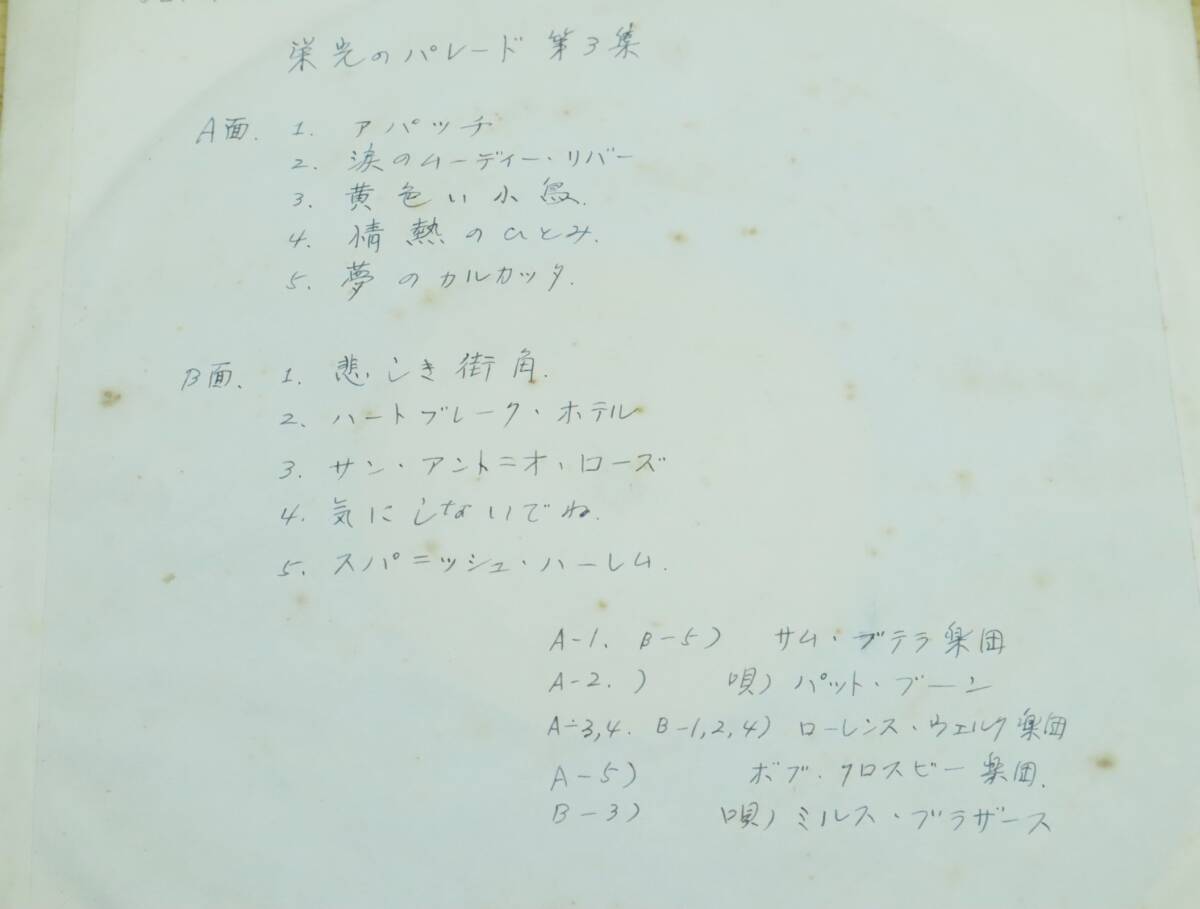 栄光のパレード 第3集
A面. 1. アパッチ
2. 涙のムーディー・リバー
3. 黄色い小鳥.
4. 情熱のひとみ.
5. 夢のカルカッタ.
B面. 1. 悲しき街角.
2. ハートブレーク・ホテル
3. サン・アントニオ・ローズ
4. 気にしないでね.
5. スパニッシュ・ハーレム.
A-1. B-5) サム・ブテラ楽団
A-2.) 唄) パット・ブーン
A-3,4. B-1,2,4) ローレンス・ウェルク楽団
A-5) ボブ.クロスビー楽団.
B-3) 唄) ミルス・ブラザース